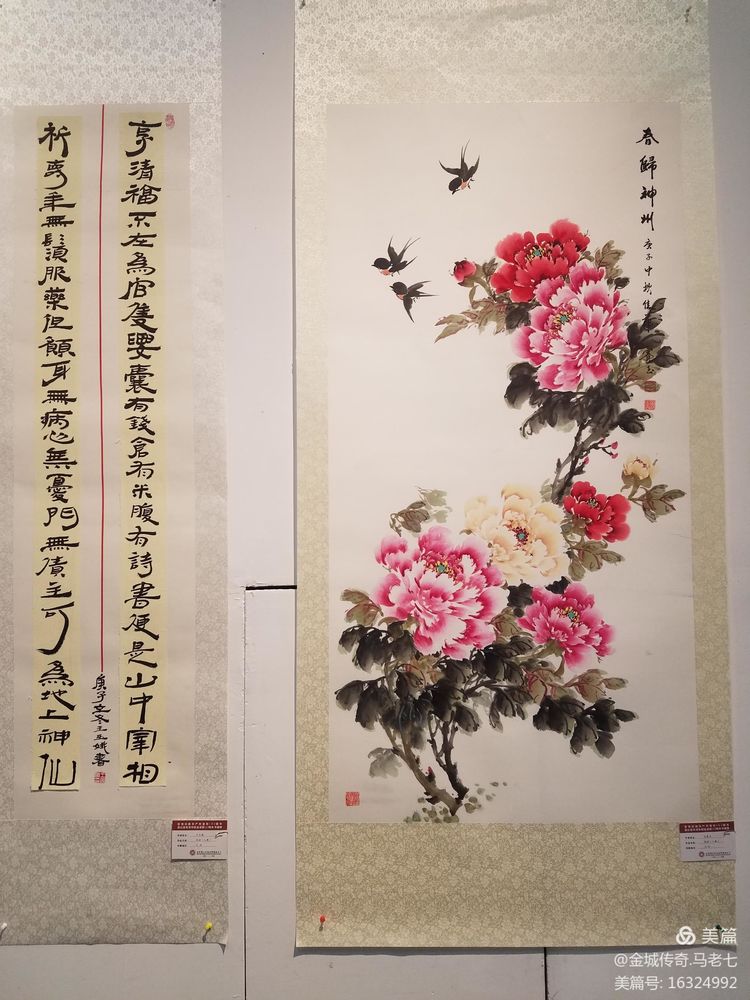 享清福不在為官隻要囊有錢倉有米腹有詩書便是山中宰相
祈壽年無須服藥但願身無病心無憂門無債主可為地上神仙
庚子立冬王玉娥書
春歸神州
庚子中秋佳
美篇
@金城传奇.马老七
美篇号: 16324992